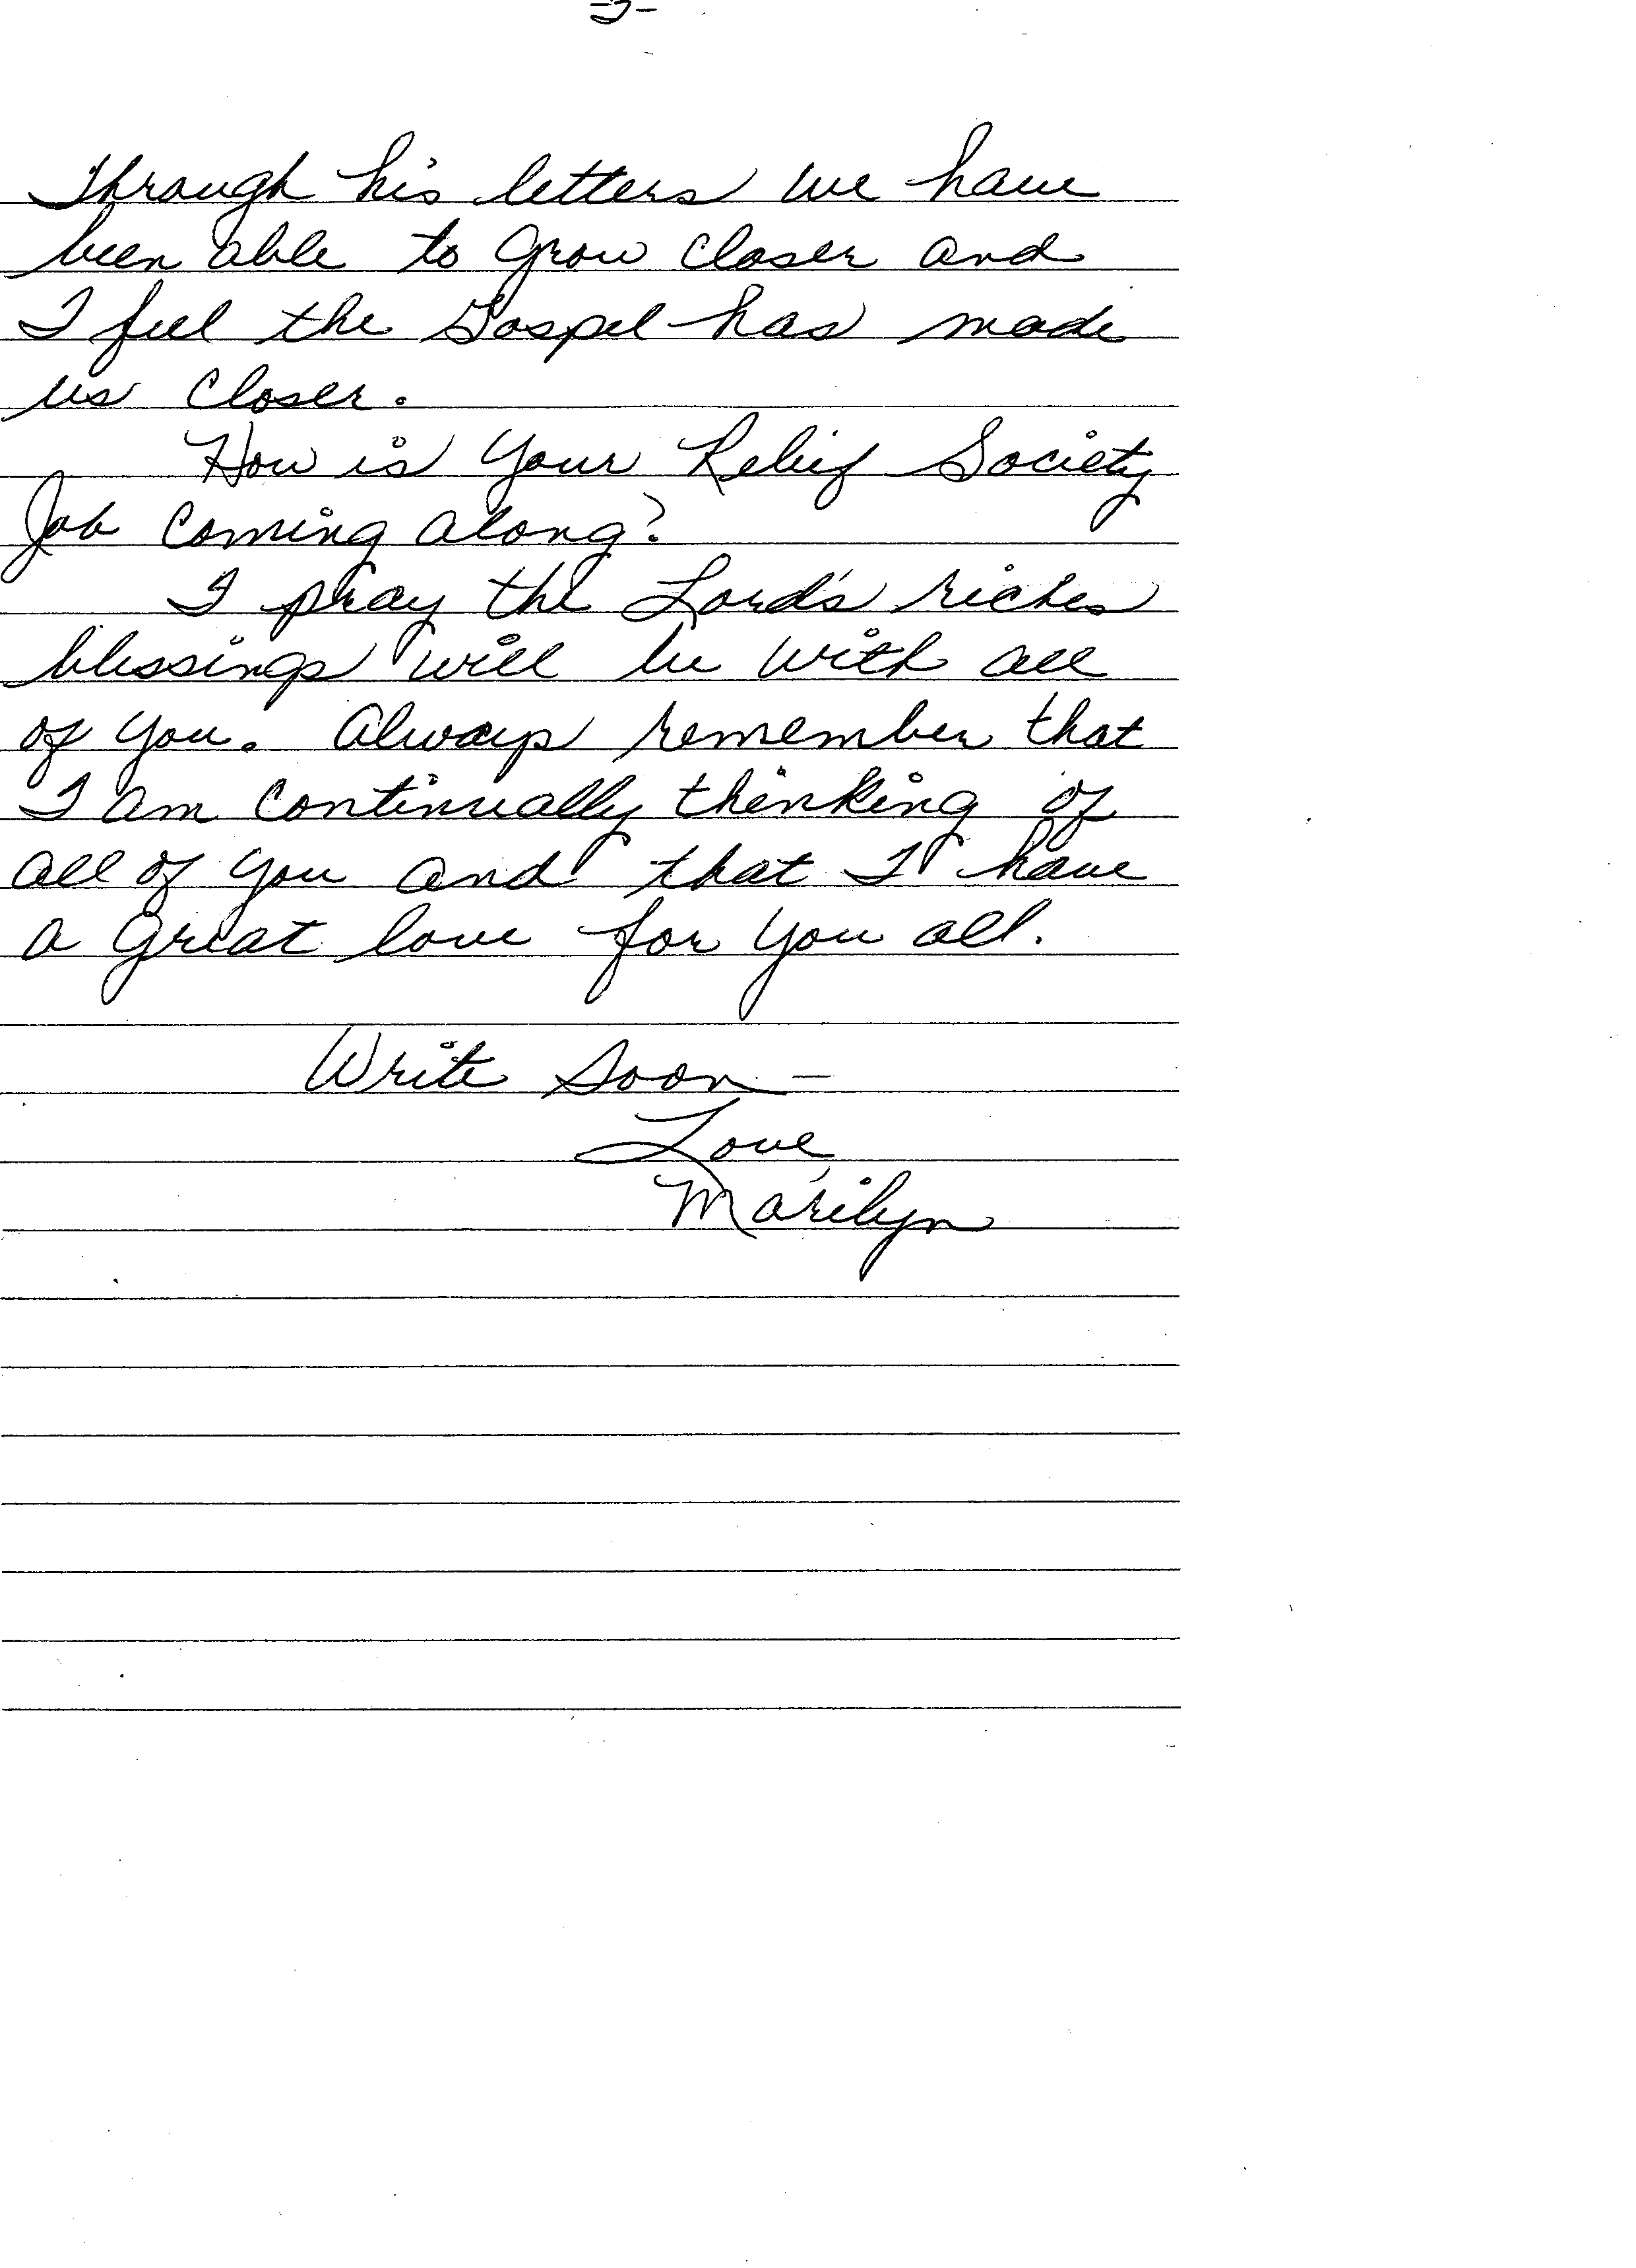 Through his letters we have
been able to grow closer and
I feel the Gospel has made
us closer.
How is your Relief Society
Job coming along?
I pray the Lord's riches
blessings will be with all
of you. Always remember that
I am continually thinking of
all of you and that I have
a great love for you all.
Write Soon -
Love,
Marilyn